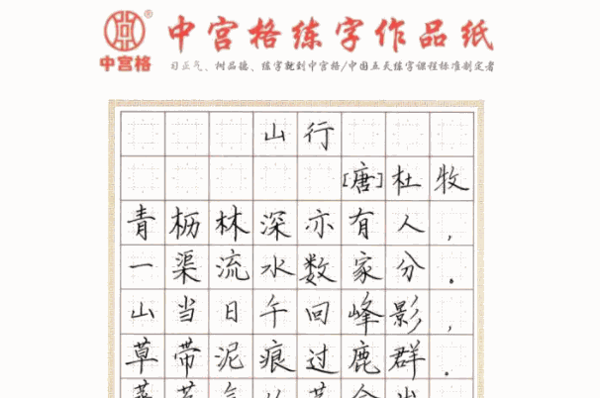 中宫格练字作品纸
中宫格
习正气、树品德、练字就到中宫格/中国五天练字课程标准制定者
山行
[唐]杜牧
青枥林深亦有人，
一渠流水数家分.
山当日午回峰影，
草带泥痕过鹿群.